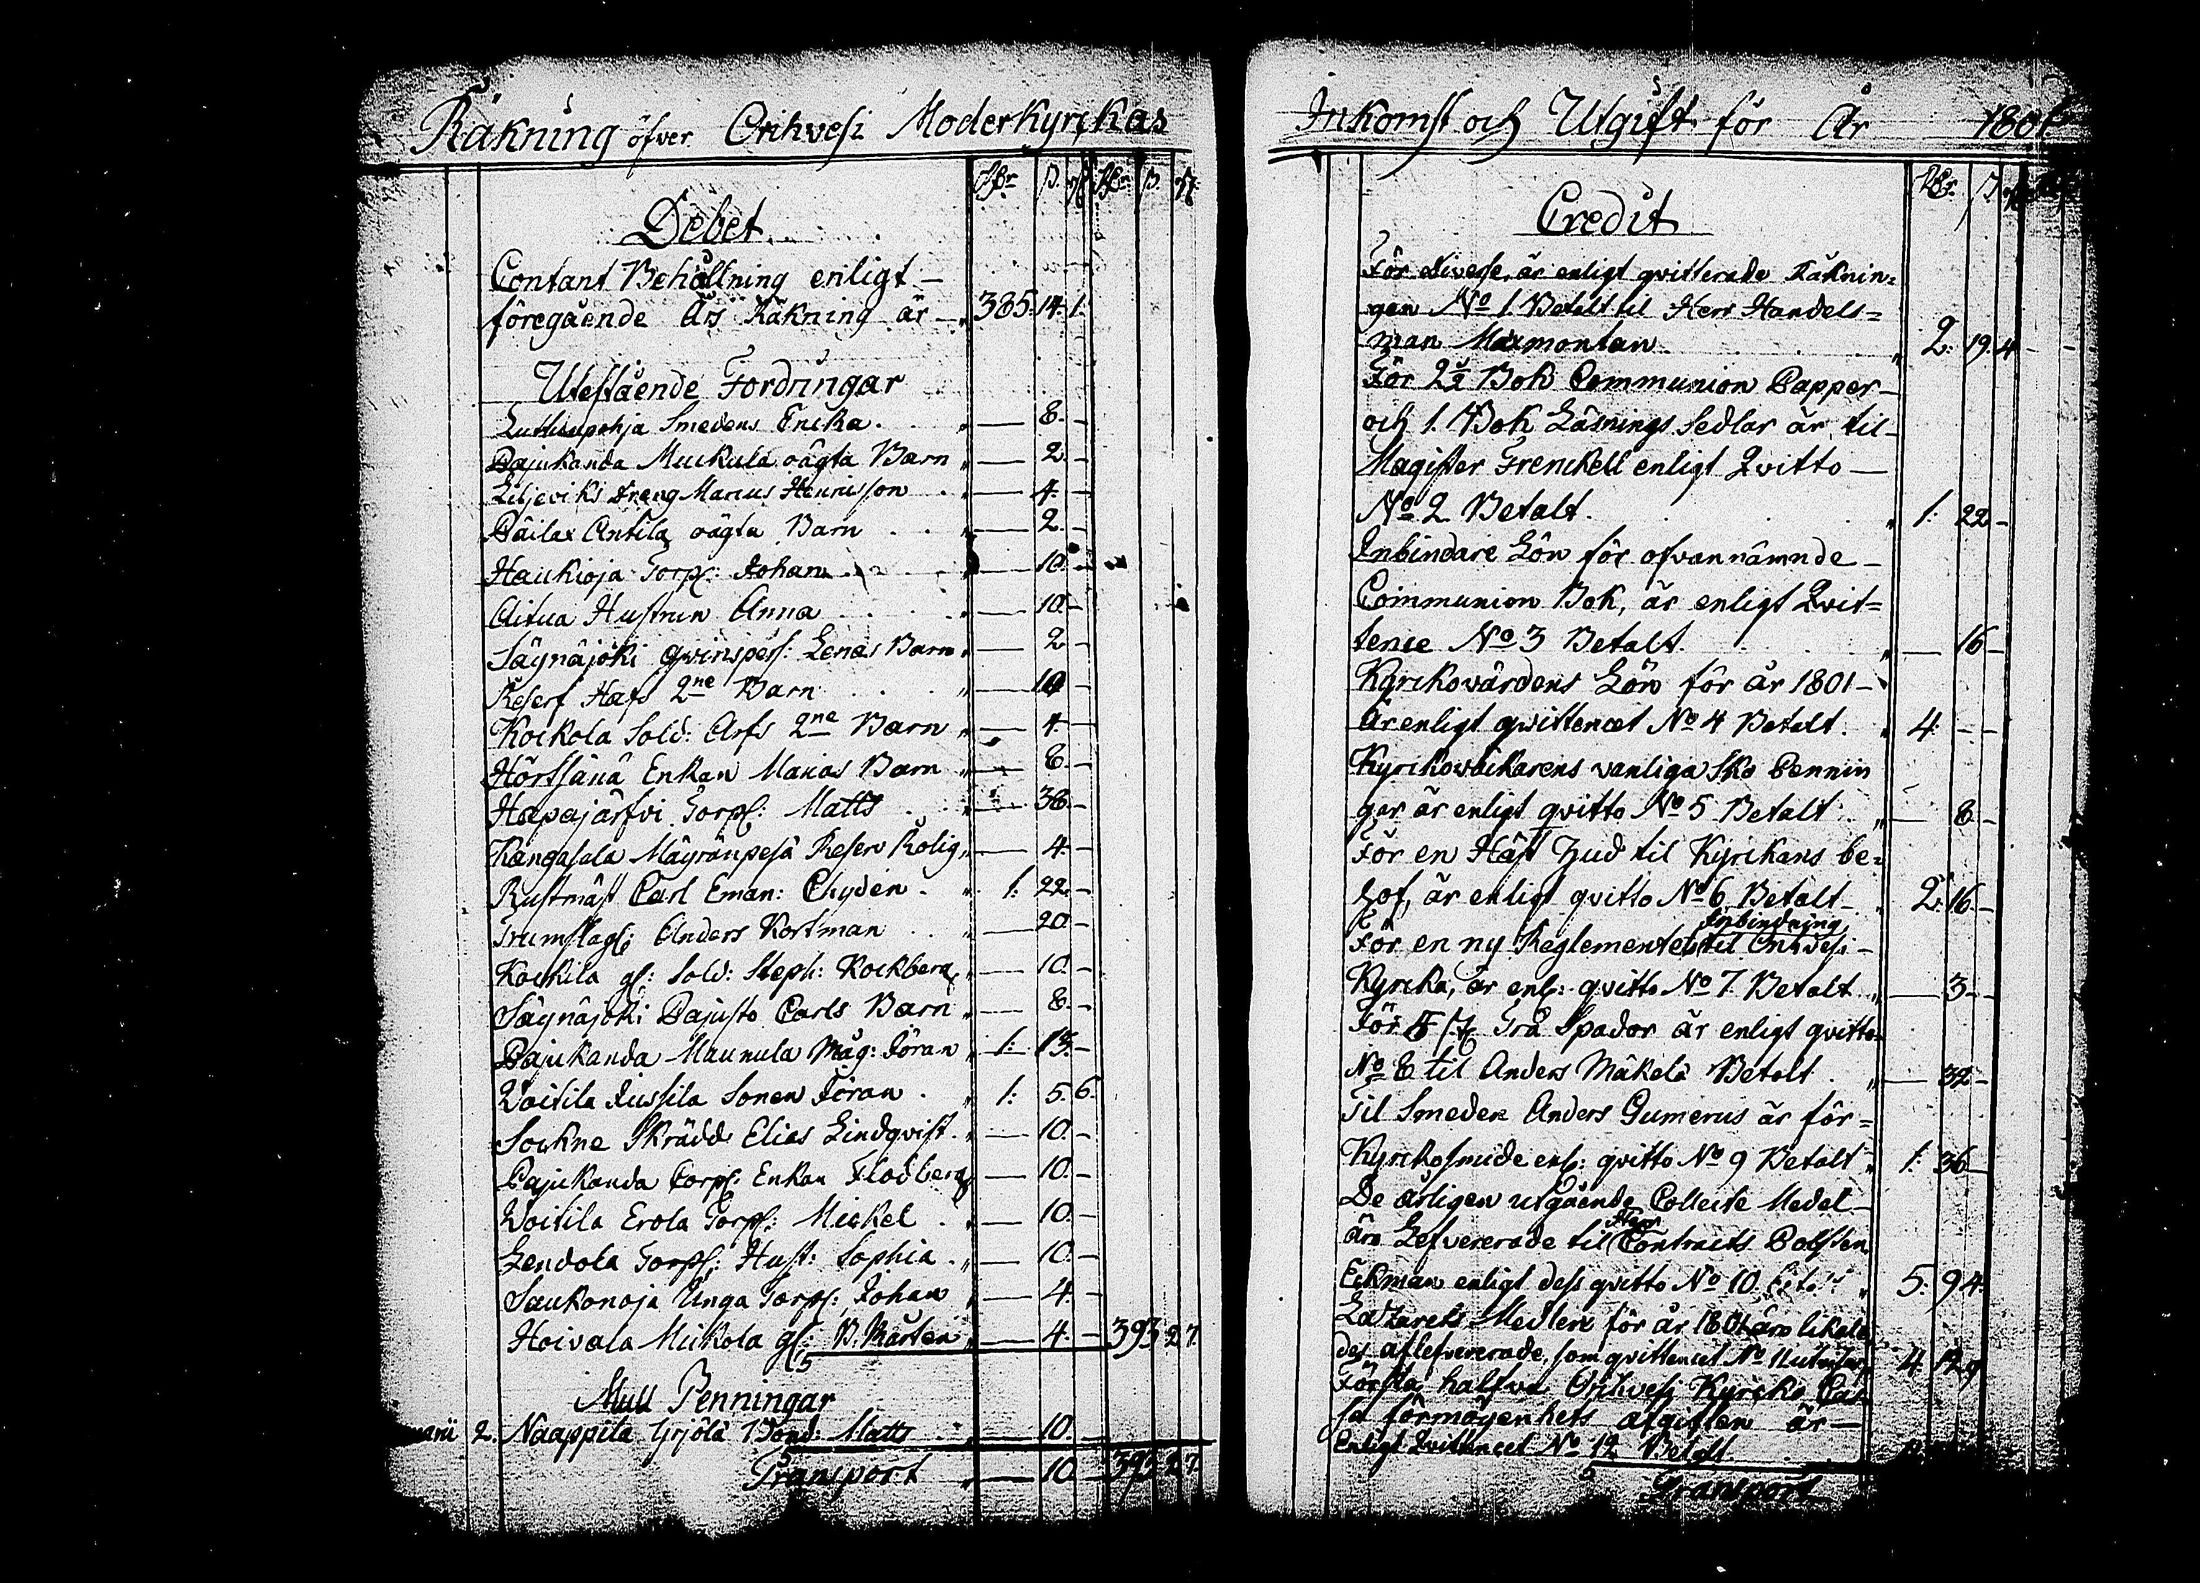 Räkning öfver Orihvesi Moderkyrckas
Debet
Contant Behållning enligt –
föregående Års Räkning är – " 385. 14. 1.
Utestående Fordringar
Smedens Erica . . " — 8. –
Pajukanda Muckula oägta Barn " — 2. –
Liljeviks Dreng Marcus Henricsson . " — 4. –
Päilax Antila oägta Barn . . " — 2. –
Haukioja Torp: Johan . . — 10. –
Aitua Hustrun Anna . . . " — 10. –
Säynäjoki qvinspers: Lenas Barn " — 2 –
Reserf Hafs 2ne Barn . . . " — 10 –
Kockola Sold: Arfs 2ne Barn " — 4. –
Enkan Marias Barn " — 8. –
Hapajärfvi Torp: Matts . . " — 36. –
Kangasala Mäyränpesä Reserv Rolig " — 4. –
Rustmäst Carl Eman: Chydén . " 1: 22. –
Trumslag: Anders Kortman . . " — 20. –
Kockila gl: Sold: Steph: Kockberg " — 10. –
Säynäjoki Pajusto Carls Barn " — 8. –
Pajukanda Maunula Måg: Jöran " 1: 13. –
Voitila Jussila Sonen Jöran . " 1: 5. 6.
Sockne Skrädd: Elias Lindqvist . " — 10. –
Pajukanda Torp: Enkan Flodberg — 10. –
Voitila Erola Torp: Mickel . " — 10. –
Lendola Torp: Hust: Sophia . " — 10. –
Saukonoja Unga Torp: Johan " — 4. –
Hoivala Mickola gl: B. Mårten " — 4. – 393 2 7.
Mull Penningar
2. Naappila Yrjölä Bond: Matts . " — 10. –
Transport " — 10. – 393 2 7.
Inkomst och Utgift för År 1801
Credit
För diverse, är enligt qvitterade Räknin=
gen No 1. Betalt til Herr Handels=
man Marmontan . . " 2: 19. 4
För 2½ Bok Communion Papper –
och 1. Bok Läsnings Sedlar är til –
Magister Frenckell enligt Qvitto —
No 2 Betalt . . . " 1: 22 –
Inbindare Lön för ofvannämnde –
Communion Bok, är enligt Qvit=
tence No 3 Betalt . . . " — 16 –
Kyrckovärdens Lön för år 1801 –
är enligt qvittencet No 4 Betalt . " 4. – –
Kyrckoväckarens vanliga Sko Pennin
gar är enligt qvitto No 5 Betalt . " — 8 –
För en Häst Hud til Kyrckans be=
hof, är enligt qvitto No 6 Betalt – " 2: 16. –
Inbindning
För en ny Reglementets til Orihvesi –
Kyrcka, är enl: qvitto No 7 Betalt " — 3 –
För 5 st Trä Spador är enligt qvitto
No 8 til Anders Mäkelä Betalt . " — 32 –
Til Smeden Anders Gumerus är för=
Kyrckosmide enl: qvitto No 9 Betalt " 1: 36 –
De årligen utgående Collecte Medel –
Herr
äro Lefvererade til Contracts Posten
Eckman enligt dess qvitto No 10 " 5: 9 4.
Lazarets Medlen för år 1801 äro likale
des aflefvererade, som qvittencet No 11 utvisar " 4: 12 9
Första halfva Orihvesi Kyrcko Cas=
sa förmögenhets afgiften är —
Enligt Qvittencet No 12 Betalt
Transport